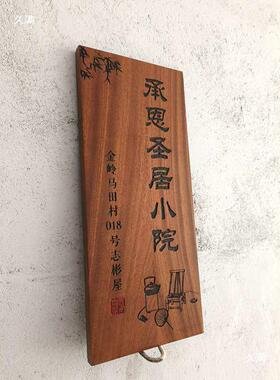 承恩圣居小院
金岭马田村018号志彬屋
久满